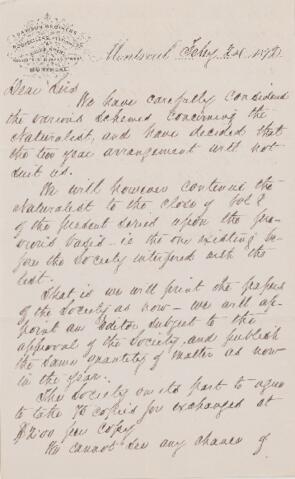 DAWSON BROTHERS
MONTREAL
Montreal Feby 24 187
Dear Sirs
We have carefully considered
the various schemes concerning the
Naturalist, and have decided that
the two year arrangement will not
suit us.
We will however continue the
Naturalist to the close of Vol 8
of the present series upon the pre-
vious basis - ie the one existing be-
fore the Society interfered with the
list.
That is we will print the papers
of the Society as now - we will ap-
point an Editor subject to the
approval of the Society, and publish
the same quantity of matter as now
in the year.
The Society on its part to agree
to take 75 copies for exchanges at
$2.00 per copy
We cannot see any chance of